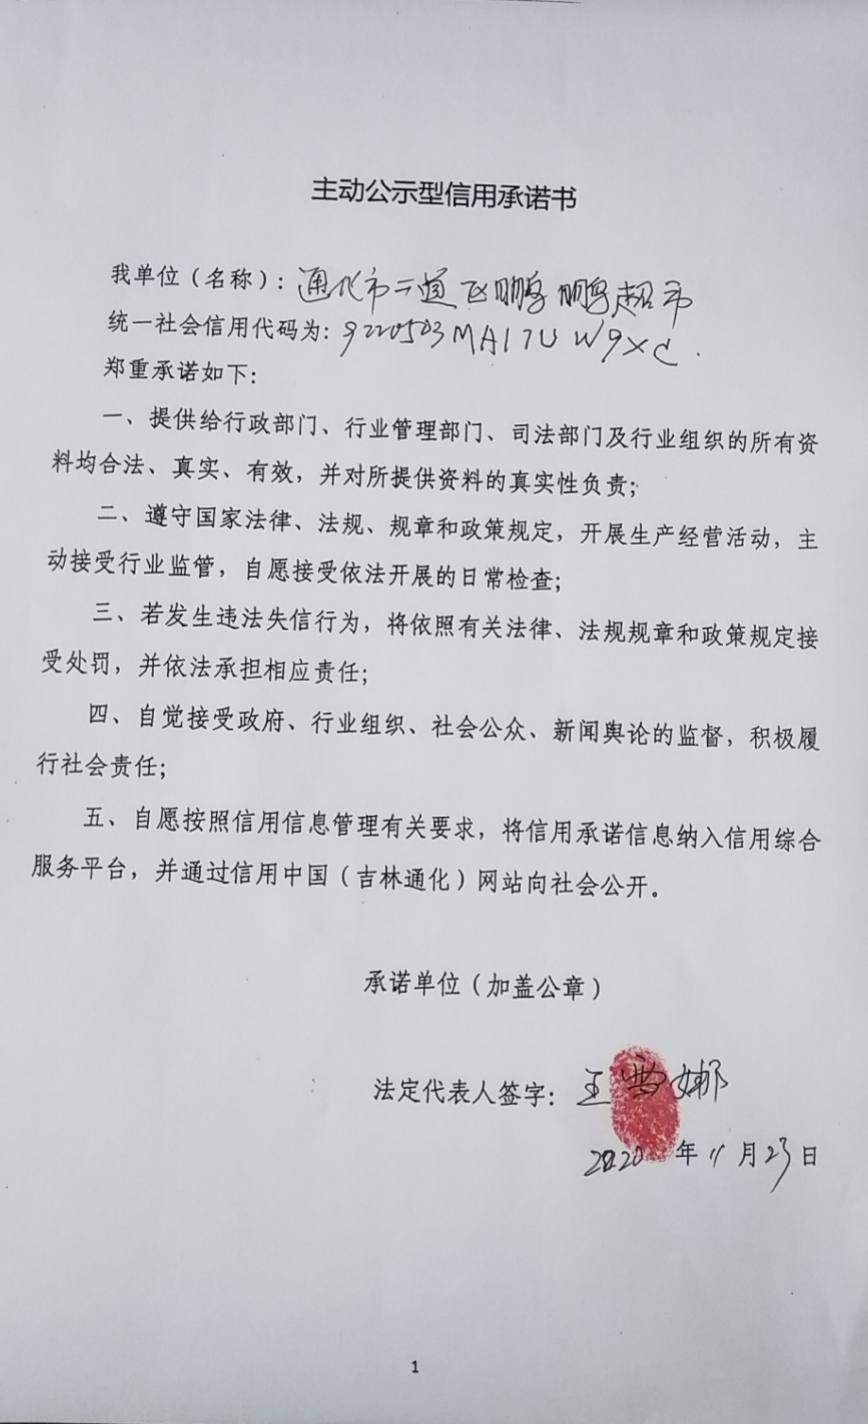 主动公示型信用承诺书
我单位（名称）：通化市二道飞鹏鹏超市
统一社会信用代码为：9220503MA17UW9XC.
郑重承诺如下：
一、提供给行政部门、行业管理部门、司法部门及行业组织的所有资
料均合法、真实、有效，并对所提供资料的真实性负责；
二、遵守国家法律、法规、规章和政策规定，开展生产经营活动，主
动接受行业监管，自愿接受依法开展的日常检查；
三、若发生违法失信行为，将依照有关法律、法规规章和政策规定接
受处罚，并依法承担相应责任；
四、自觉接受政府、行业组织、社会公众、新闻舆论的监督，积极履
行社会责任；
五、自愿按照信用信息管理有关要求，将信用承诺信息纳入信用综合
服务平台，并通过信用中国（吉林通化）网站向社会公开。
承诺单位（加盖公章）
法定代表人签字：王雪娜
2020年11月23日
1